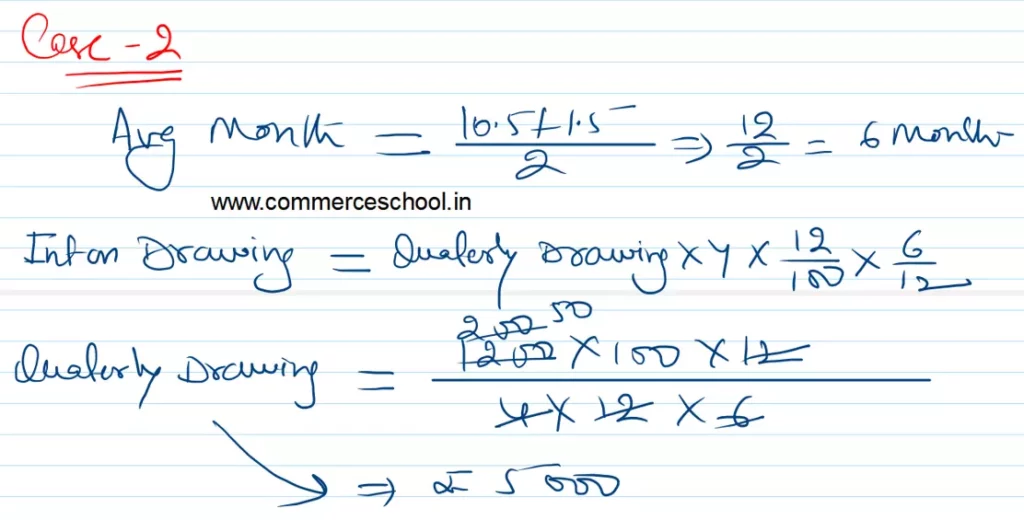 Case - 2
Avg Month = 10.5+1.5/2 ⇒ 12/2 = 6 Months
www.commerceschool.in
Int on Drawing = Quaterly Drawing × 4 × 12/100 × 6/12
200 50
Quaterly Drawing = 1200 × 100 × 12 / 4 × 12 × 6
⇒ ₹ 5000